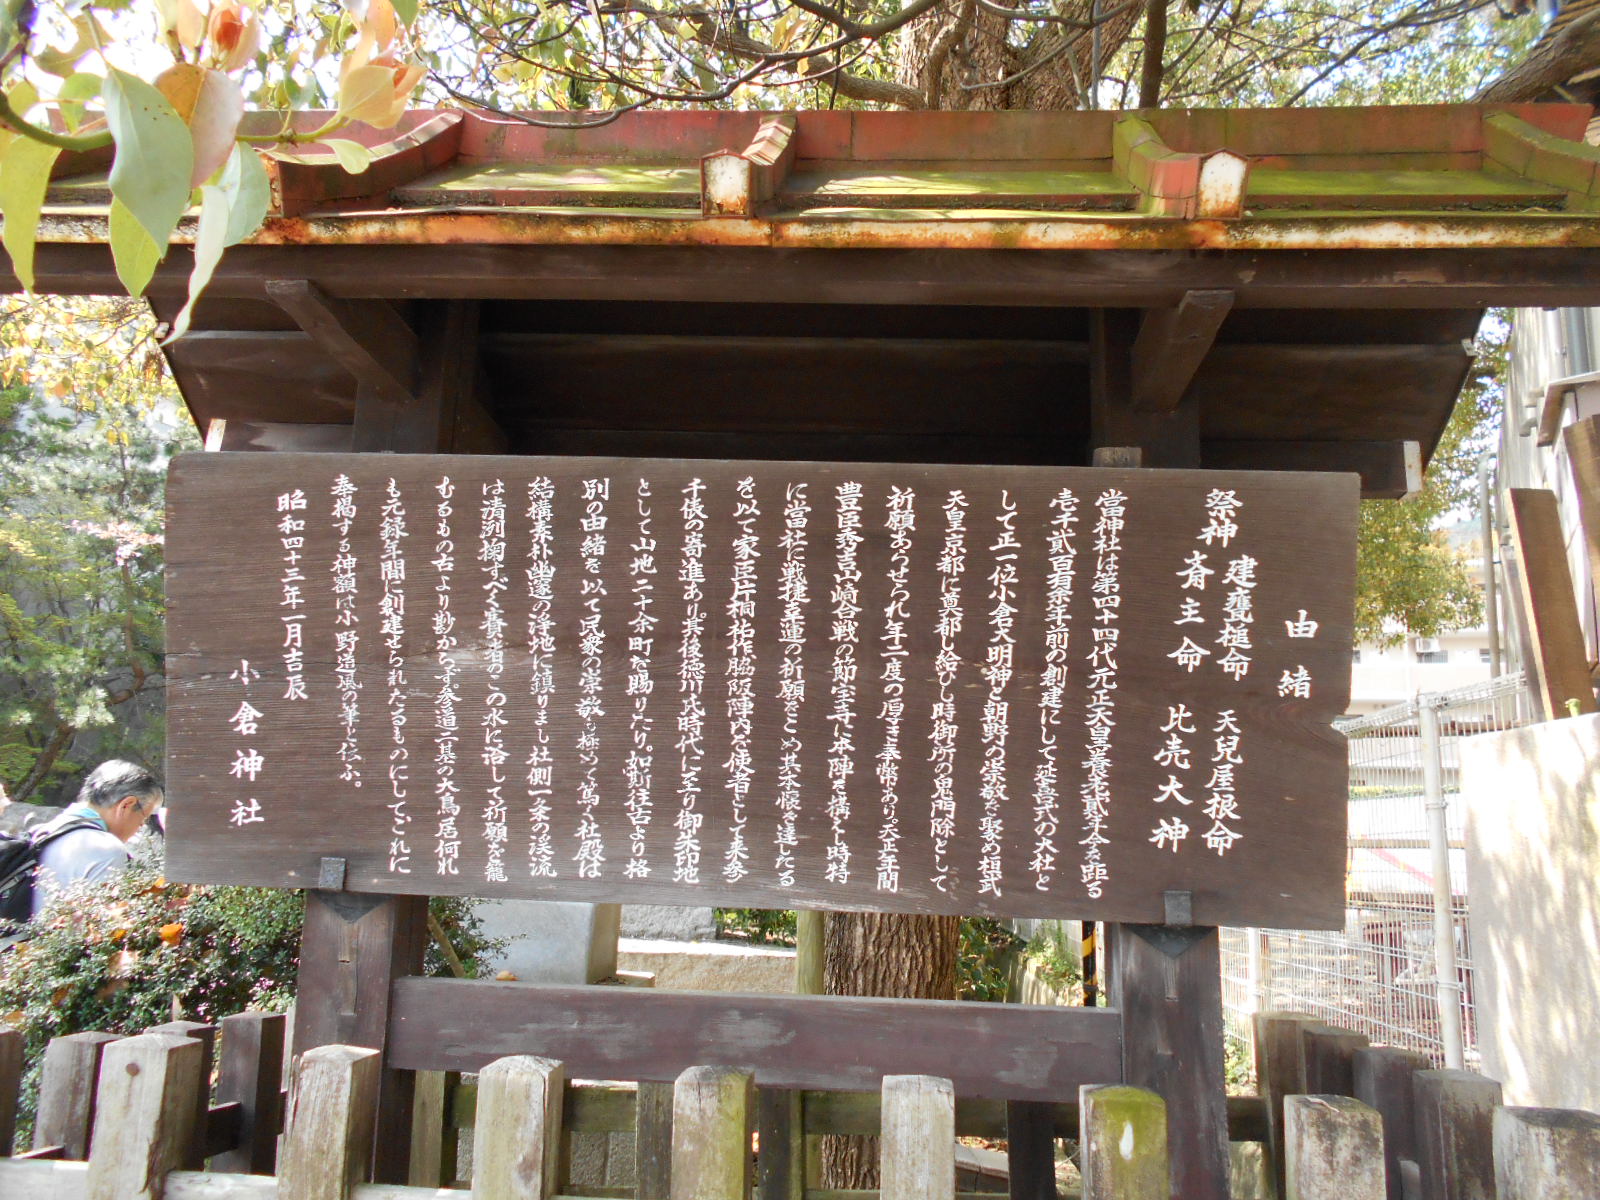 由緒
祭神 建甕槌命 天兒屋根命
斎主命 比売大神
當神社は第四十四代元正天皇養老貳年今を距る
壱千貳百有余年前の創建にして延喜式の大社と
して正一位小倉大明神と朝野の崇敬を聚め桓武
天皇京都に奠都し給ひし時御所の鬼門除として
祈願あらせられ年二度の厚き奉幣あり。天正年間
豊臣秀吉山崎合戦の節宝寺に本陣を構えし時特
に當社に戦捷幸運の祈願をこめ其本懐を達したる
を以て家臣片桐祐作脇阪陣内を使者として来参
千俵の寄進あり。其後徳川氏時代に至り御朱印地
として山地二十余町を賜りたり。如斯往古より格
別の由緒を以て民衆の崇敬も極めて篤く社殿は
結構素朴幽邃の浄地に鎮りまし社側一条の渓流
は清冽掬すべく貴顕のこの水に浴して祈願を籠
むるもの古より尠からず。参道二基の大鳥居何れ
も元録年間に創建せられたるものにして、これに
奉掲する神額は小野道風の筆と伝ふ。
昭和四十三年一月吉辰
小倉神社